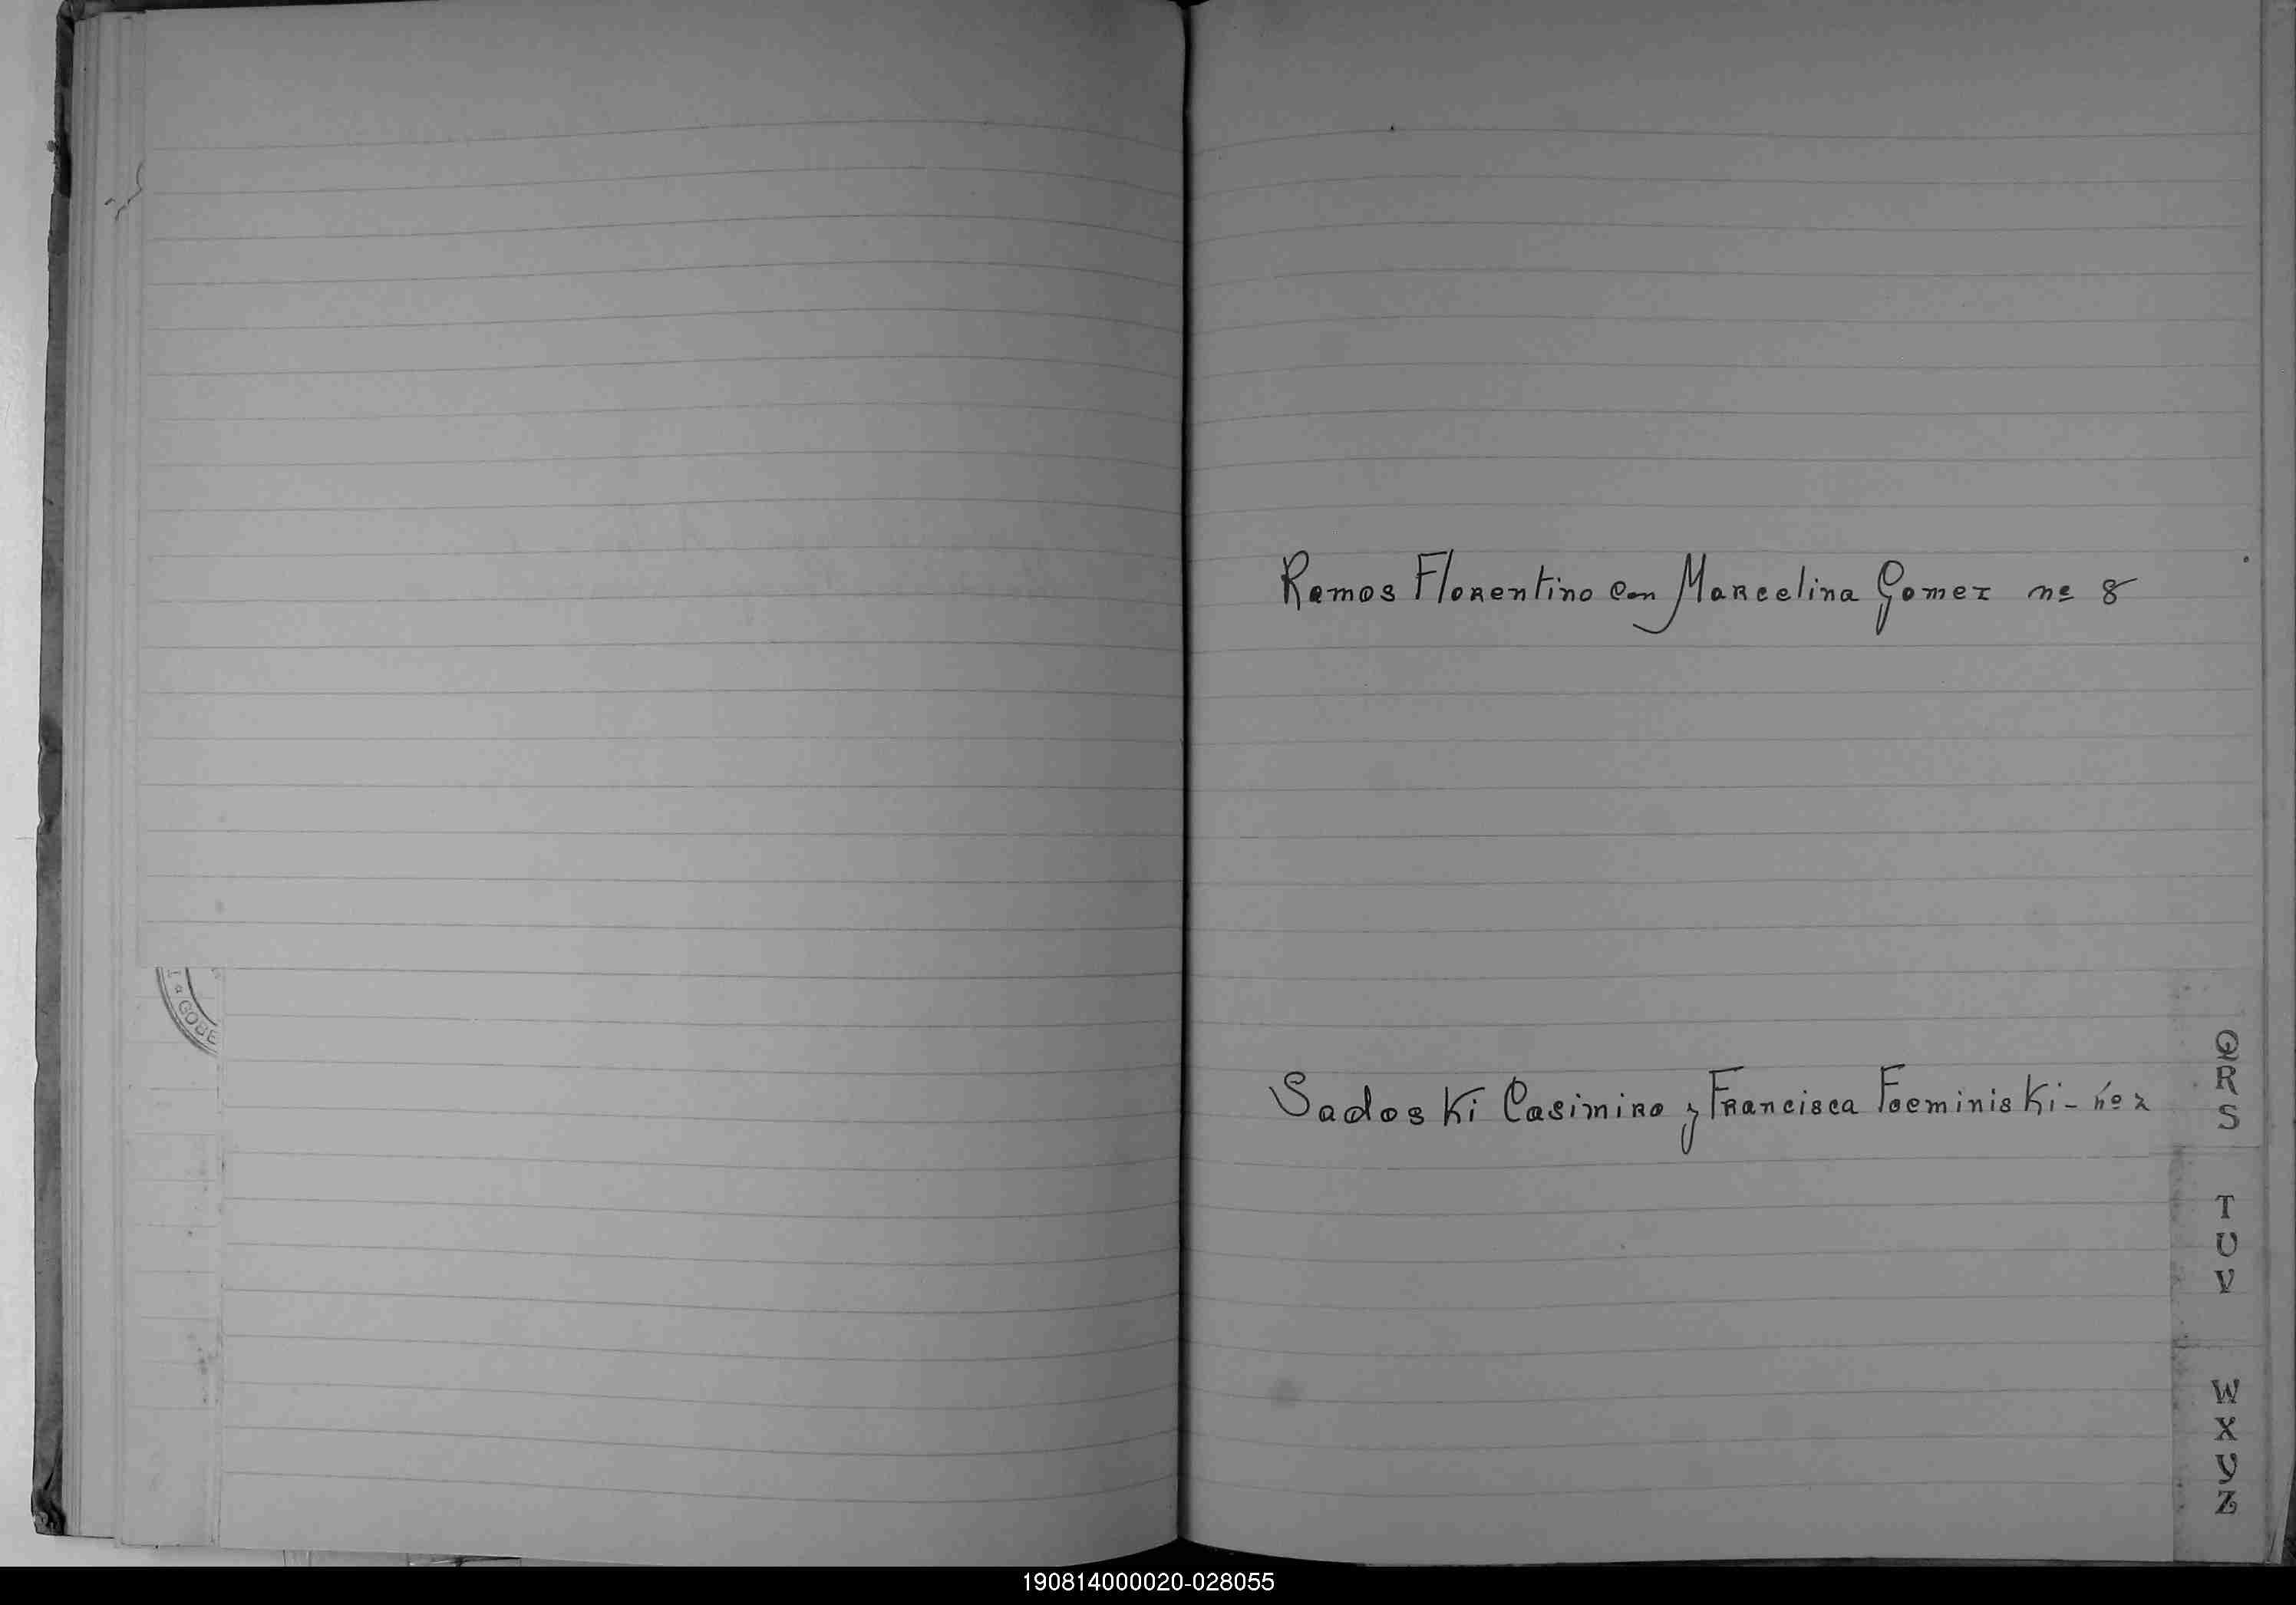 GOBE
Ramos Florentino con Marcelina Gomez nº 8
Sadoski Casimiro y Francisca Foeminiski - nº 2
Q
R
S
T
U
V
W
X
Y
Z
190814000020-028055